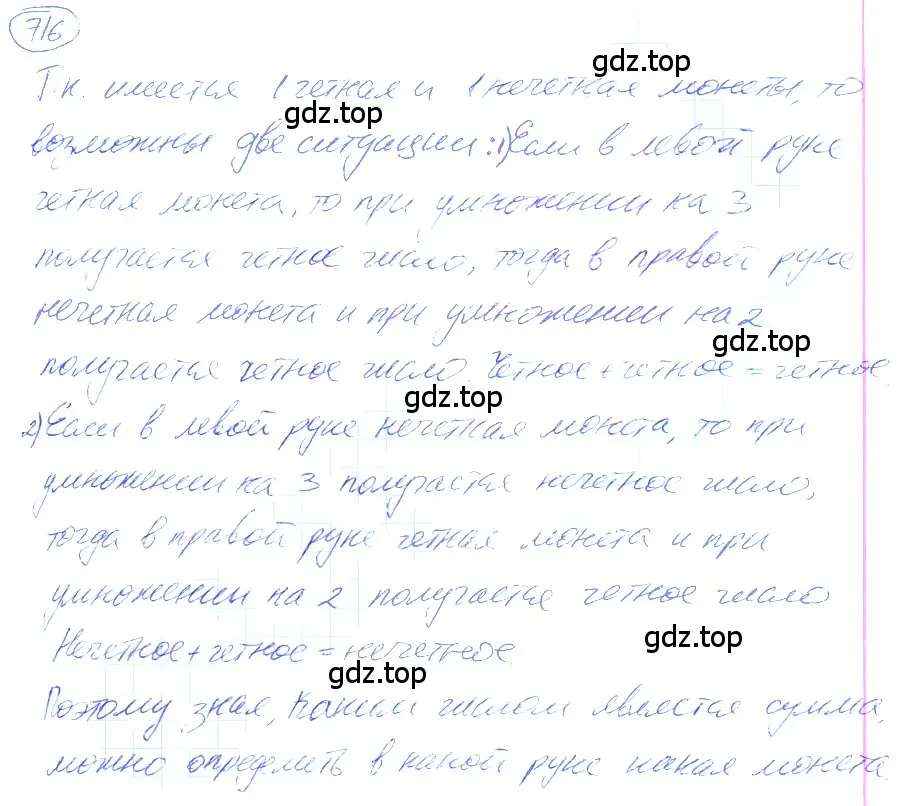 716
gdz.top
Т.к. имеется 1 четная и 1 нечетная монеты, то
gdz.top
возможны две ситуации: 1) Если в левой руке
gdz.top
четная монета, то при умножении на 3
получается четное число, тогда в правой руке
gdz.top
нечетная монета и при умножении на 2
gdz.top
получается четное число. Четное + четное = четное.
gdz.top
2) Если в левой руке нечетная монета, то при
умножении на 3 получается нечетное число,
тогда в правой руке четная монета и при
умножении на 2 получается четное число
gdz.top
Нечетное + четное = нечетное.
gdz.top
Поэтому зная, каким числом является сумма,
можно определить в какой руке какая монета.